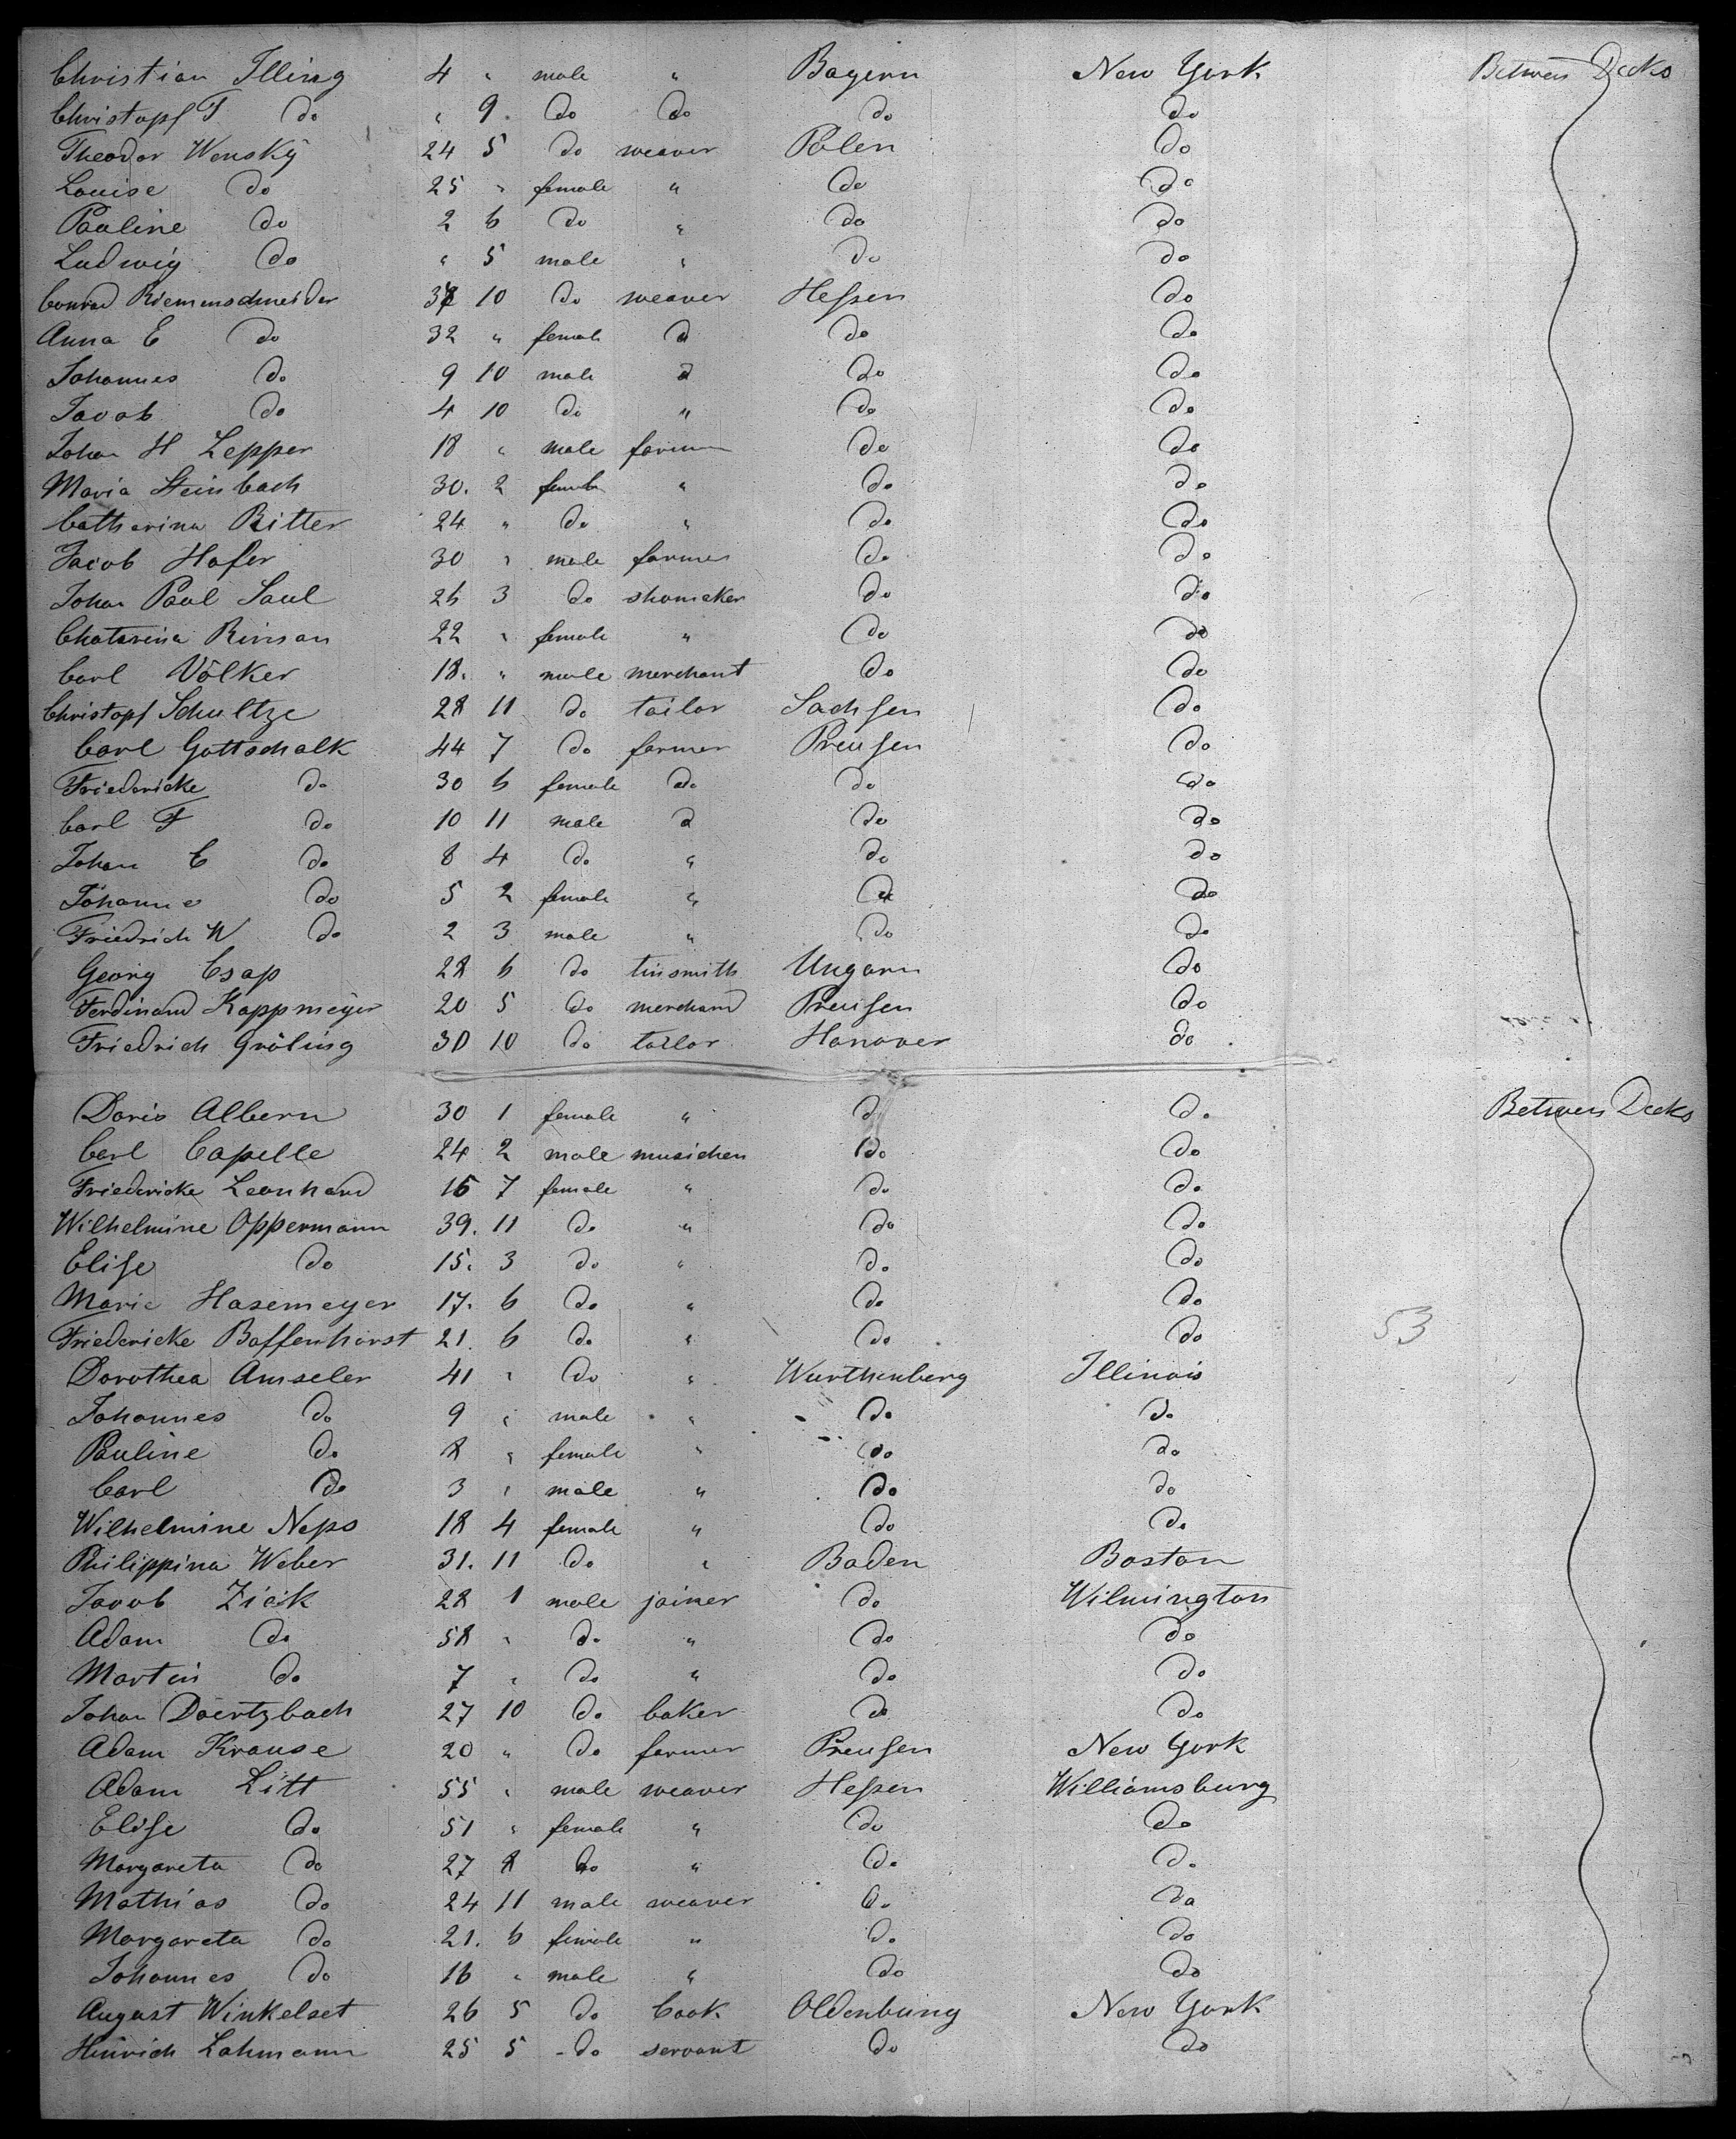 Christian Illing 4 " male " Bayern New York Between Decks
Christopf F do " 9. do do do do
Theodor Wensky 24 5 do weaver Polen do
Louise do 25 " female " do do
Pauline do 2 6 do " do do
Ludwig do " 5 male " do do
Conrad Riemenschneider 10 do weaver Hessen do
Anna E do 32 " female d do do
Johannes do 9 10 male d do do
Jacob do 4 10 do " do do
Johan H Lepper 18 " male farmer do do
Maria Steinbach 30. 2 female " do do
Catharina Ritter 24 " do " do do
Jacob Hofer 30 " male farmer do do
Johan Paul Saul 26 3 do shomaker do do
Chatarina Rinsan 22 " female " do do
Carl Völker 18. " male merchant do do
Christopf Schultze 28 11 do tailor Sachsen do
Carl Gottschalk 44 7 do farmer Preusen do
Friedericke do 30 6 female do do do
Carl F do 10 11 male d do do
Johan C do 8 4 do " do do
Johanne do 5 2 female " do do
Friedrich W do 2 3 male " do do
Georg Csap 28 6 do tinsmith Ungarn do
Ferdinand Kappmeyer 20 5 do merchand Preusen do
Friedrich Gröling 30 10 do tailor Hanover do
Doris Albern 30 1 female " do do Between Decks
Carl Capelle 24 2 male musichen do do
Friedericke Leonhard 16 7 female " do do
Wilhelmine Oppermann 39. 11 do " do do
Elise do 15. 3 do " do do
Marie Hasemeyer 17. 6 do " do do
Friedericke Baffenhorst 21. 6 do " do do 53
Dorothea Amseler 41 " do " Wurthenberg Illinois
Johannes do 9 " male " do do
Pauline do 8 " female " do do
Carl do 3 " male " do do
Wilhelmine Neps 18 4 female " do do
Philippina Weber 31. 11 do " Baden Boston
Jacob Zick 28 1 male joiner do Wilmington
Adam do 58 " do " do do
Martin do 7 " do " do do
Johan Doertzbach 27 10 do baker do do
Adam Krause 20 " do farmer Preusen New York
Adam Litt 55 " male weaver Hessen Williamsburg
Elise do 51 " female " do do
Margareta do 27 8 do " do do
Mathias do 24 11 male weaver do do
Margareta do 21. 6 female " do do
Johannes do 16 " male " do do
August Winkelset 26 5 do Cook Oldenburg New York
Hinrich Lahmann 25 5 do servant do do